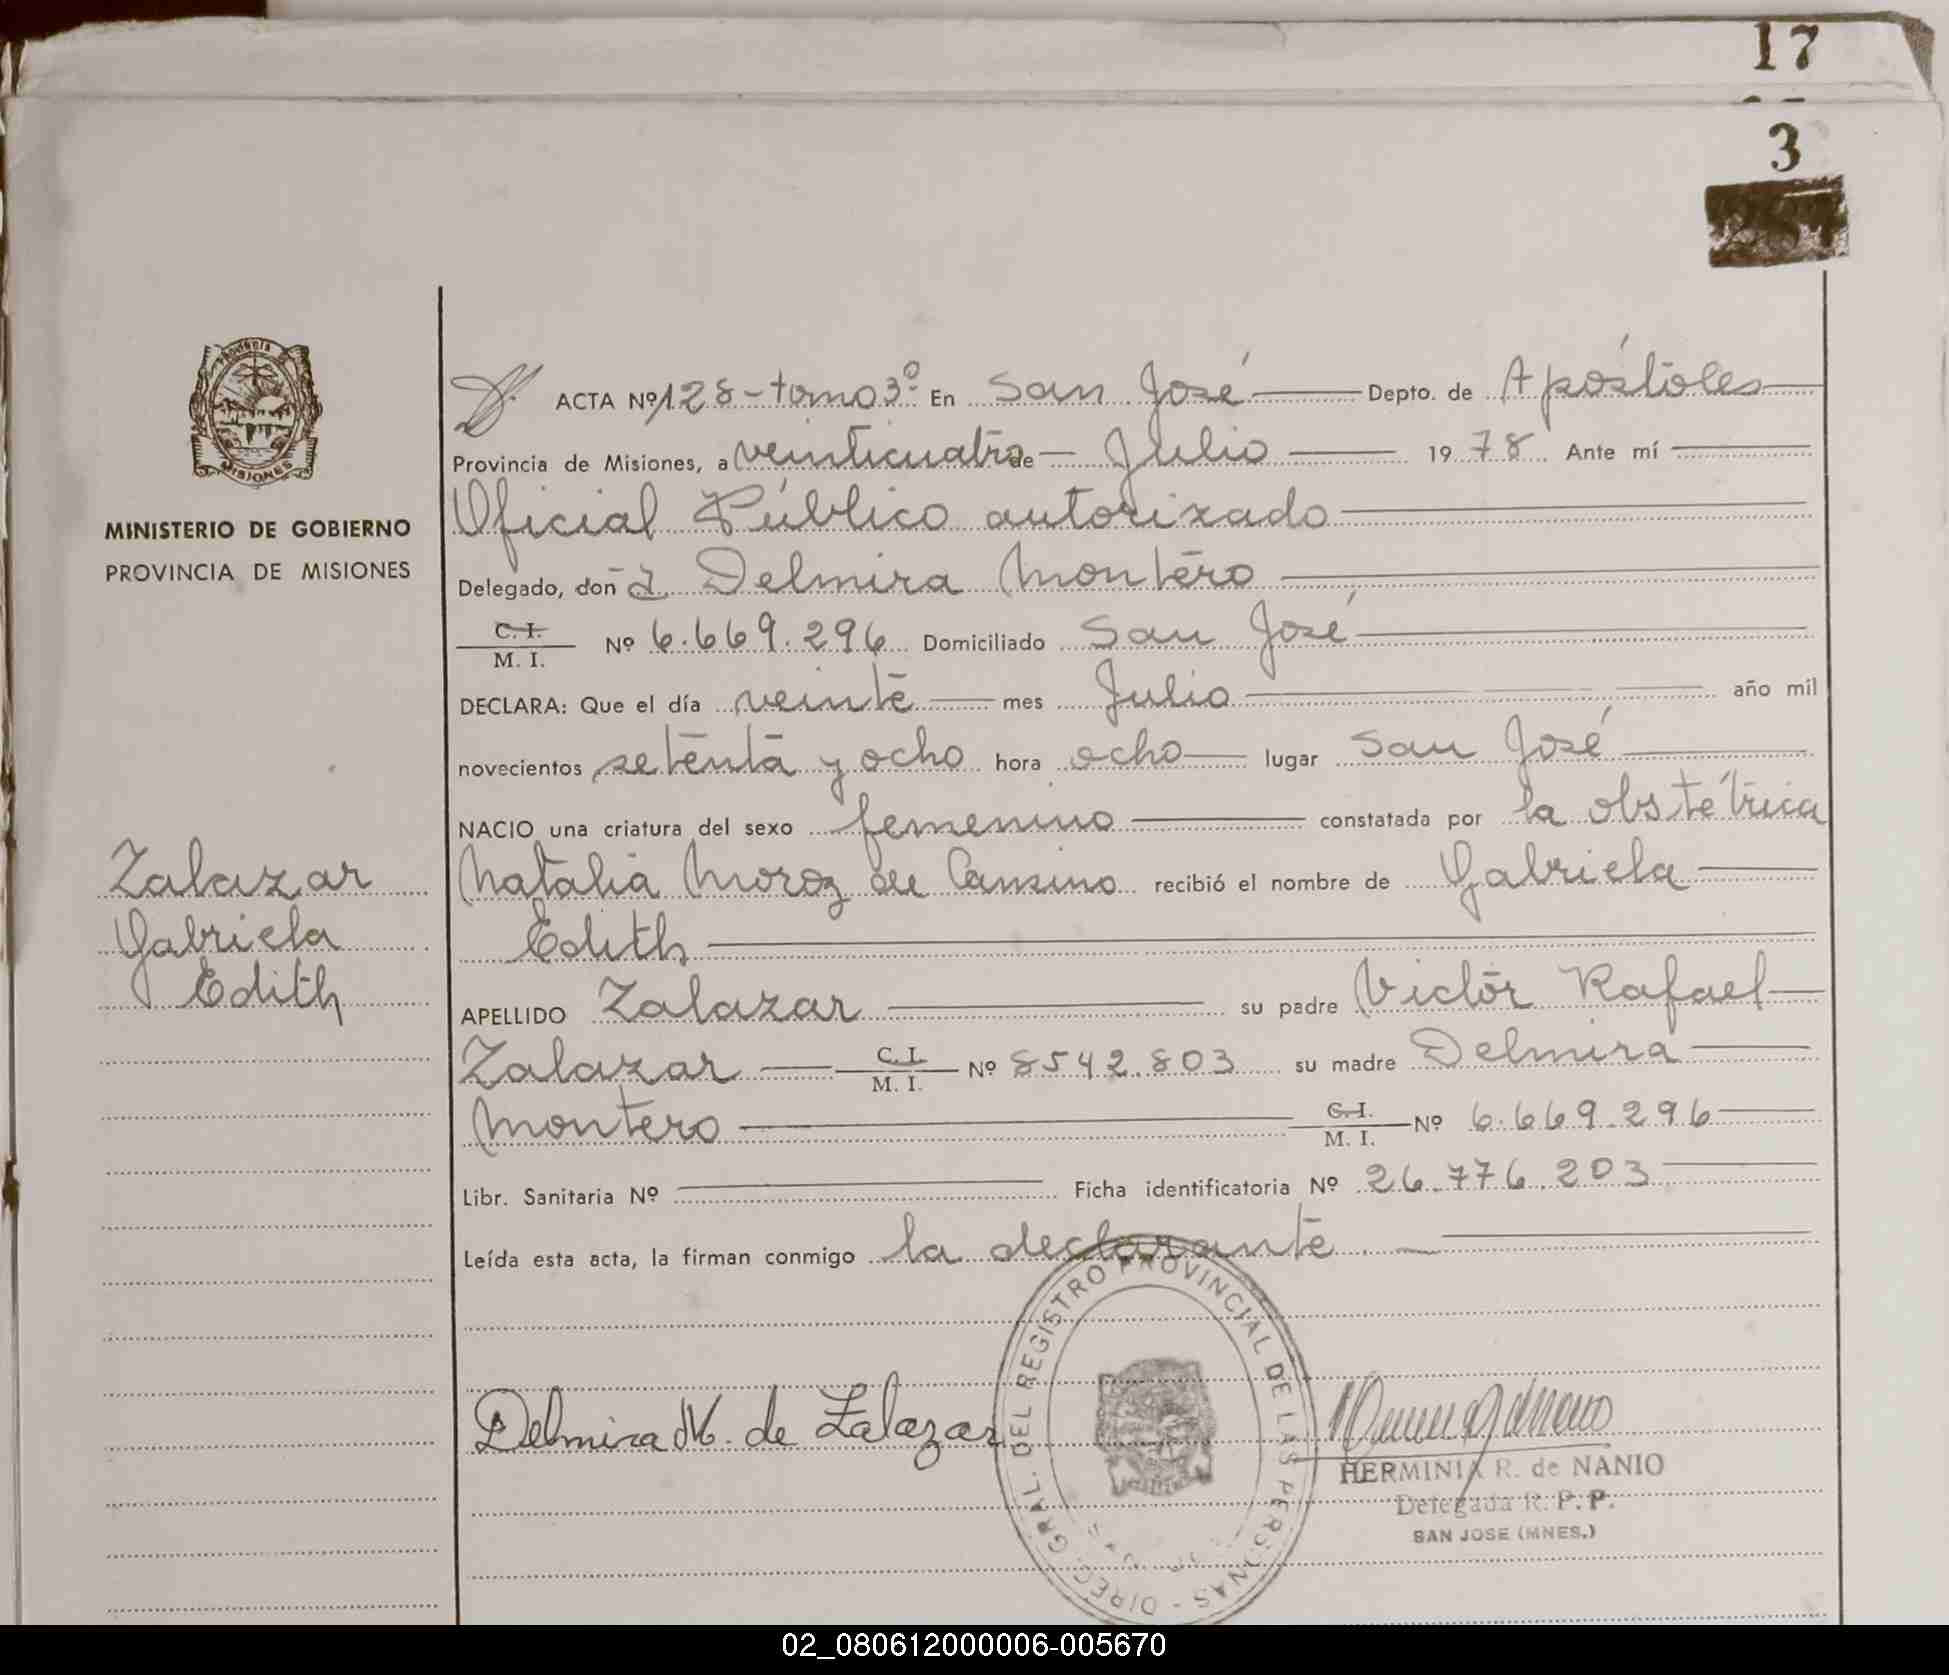 17
3
PROVINCIA DE
MISIONES
MINISTERIO DE GOBIERNO
PROVINCIA DE MISIONES
Zalazar
Gabriela
Edith
ACTA Nº 128 - tomo 3º En San José Depto. de Apóstoles
Provincia de Misiones, a veinticuatro de Julio 1978 Ante mí
Oficial Público autorizado
Delegado, doña Delmira Montero
C. I.
M. I. Nº 6.669.296 Domiciliado San José
DECLARA: Que el día veinte mes Julio año mil
novecientos setenta y ocho hora ocho lugar San José
NACIO una criatura del sexo femenino constatada por la obstétrica
Natalia Moroz de Cansino recibió el nombre de Gabriela
Edith
APELLIDO Zalazar su padre Victor Rafael
Zalazar C. I. M. I. Nº 8542.803 su madre Delmira
Montero C. I. M. I. Nº 6.669.296
Libr. Sanitaria Nº Ficha identificatoria Nº 26.776.203
Leída esta acta, la firman conmigo la declarante.
Delmira M. de Zalazar
DIREC. GRAL. DEL REGISTRO PROVINCIAL DE LAS PERSONAS
HERMINIA R. de NANIO
Delegada R. P. P.
SAN JOSE (MNES.)
02_080612000006-005670